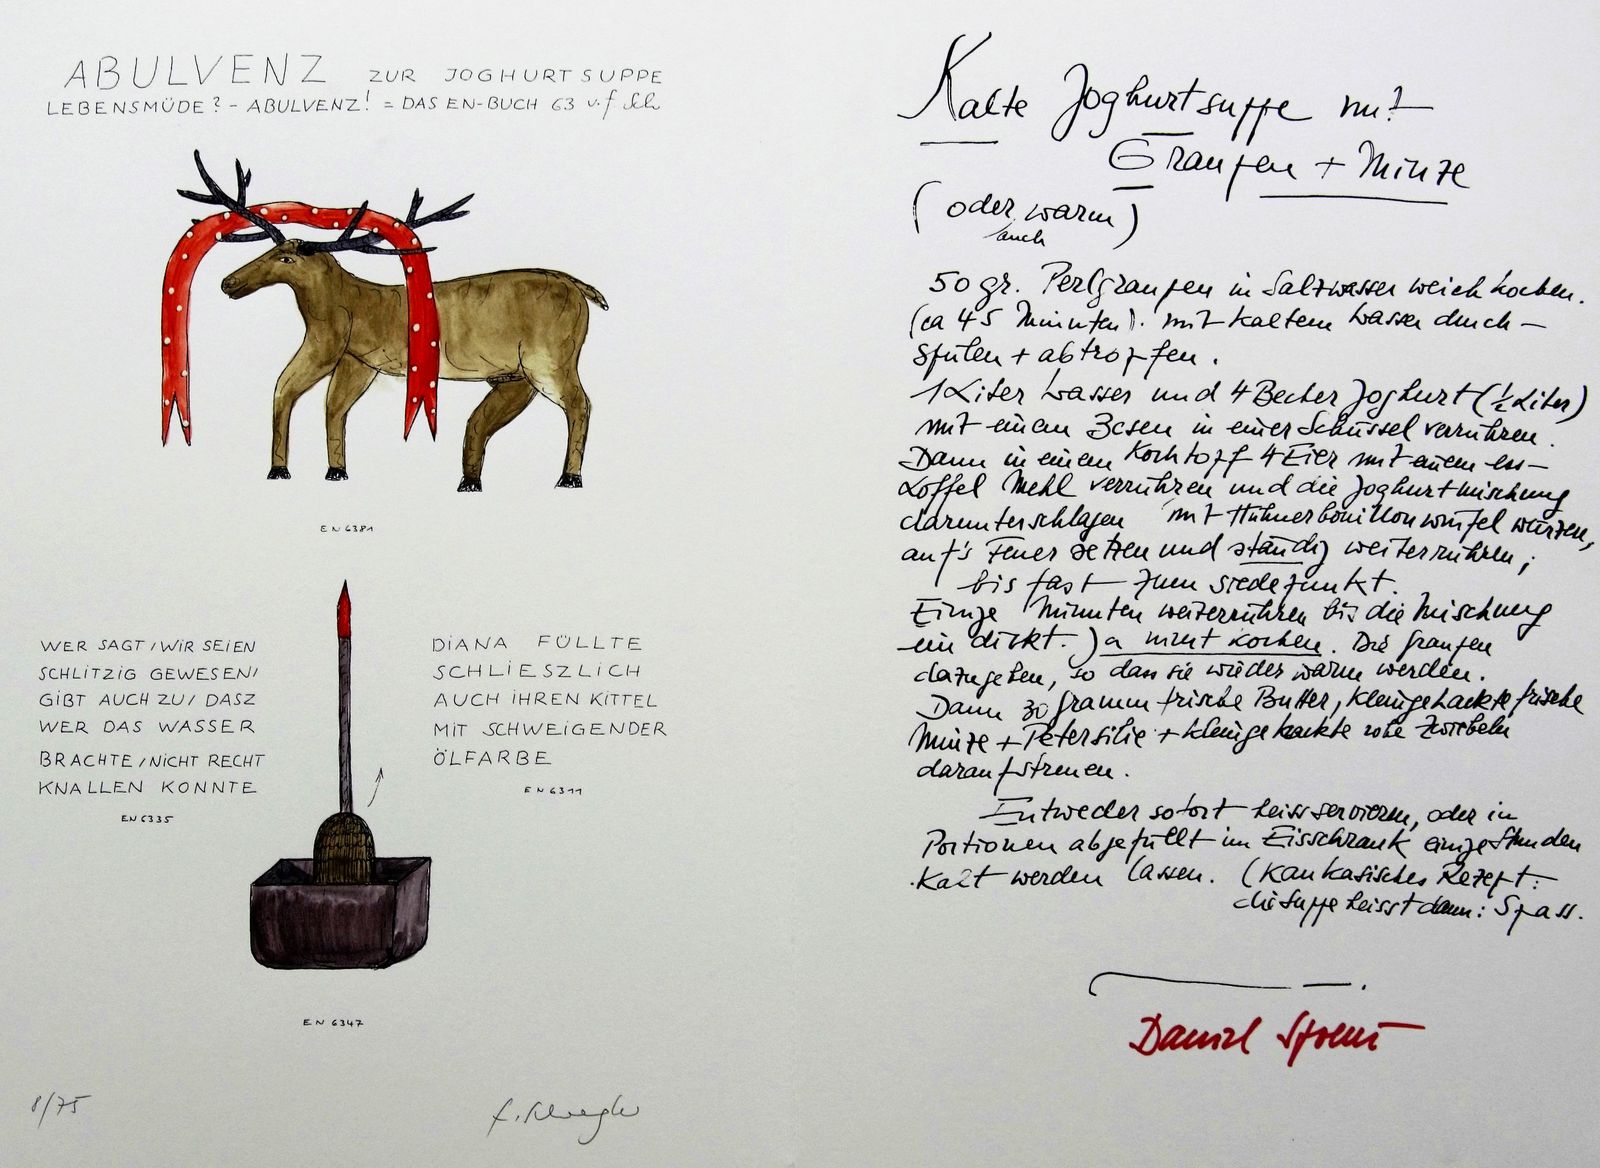 ABULVENZ ZUR JOGHURTSUPPE
LEBENSMÜDE? - ABULVENZ! = DAS EN-BUCH 63 v. f Sch
EN 6381
WER SAGT, WIR SEIEN
SCHLITZIG GEWESEN,
GIBT AUCH ZU, DASZ
WER DAS WASSER
BRACHTE, NICHT RECHT
KNALLEN KONNTE
EN 6335
DIANA FÜLLTE
SCHLIESZLICH
AUCH IHREN KITTEL
MIT SCHWEIGENDER
ÖLFARBE
EN 6311
EN 6347
8/75
Kalte Joghurtsuppe mit
Graupen + Minze
(oder warm)
auch
50 gr. Perlgraupen in Salzwasser weich kochen.
(ca 45 Minuten). mit kaltem Wasser durch-
spülen + abtropfen.
1 Liter Wasser und 4 Becher Joghurt (1/2 Liter)
mit einem Besen in einer Schüssel verrühren.
Dann in einem Kochtopf 4 Eier mit einem Ess-
Löffel Mehl verrühren und die Joghurtmischung
darunterschlagen mit Hühnerbouillonwürfel würzen,
auf's Feuer setzen und ständig weiterrühren;
bis fast zum Siedepunkt.
Einige Minuten weiterrühren bis die Mischung
eindickt. Ja nicht kochen. Die Graupen
dazugeben, so dass sie wieder warm werden.
Dann 30 gramm frische Butter, kleingehackte frische
Minze + Petersilie + kleingehackte rohe Zwiebeln
daraufstreuen.
Entweder sofort heiss servieren, oder in
Portionen abgefüllt im Eisschrank einige Stunden
Kalt werden lassen. (Kaukasisches Rezept:
die Suppe heisst dann: Spass.
Daniel Spoerri